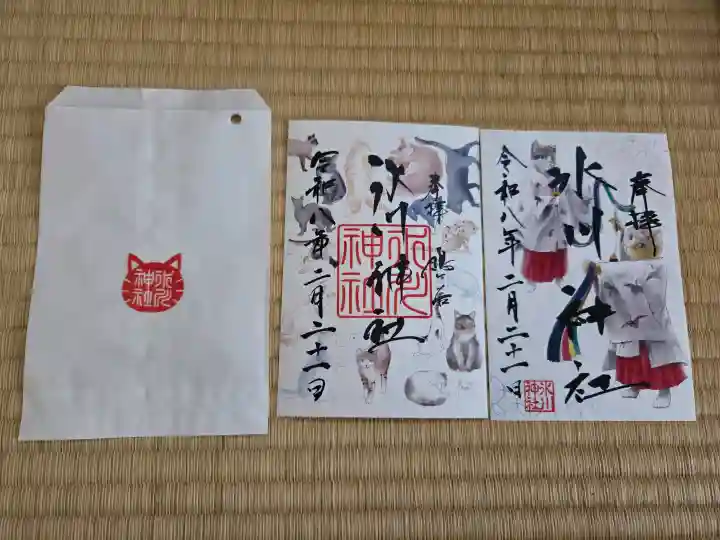 氷川
神社
奉拝
鶴ヶ岩
氷川神社
氷川
神社
令和八年二月二十一日
奉拝
氷川神社
令和八年二月二十一日
氷川
神社